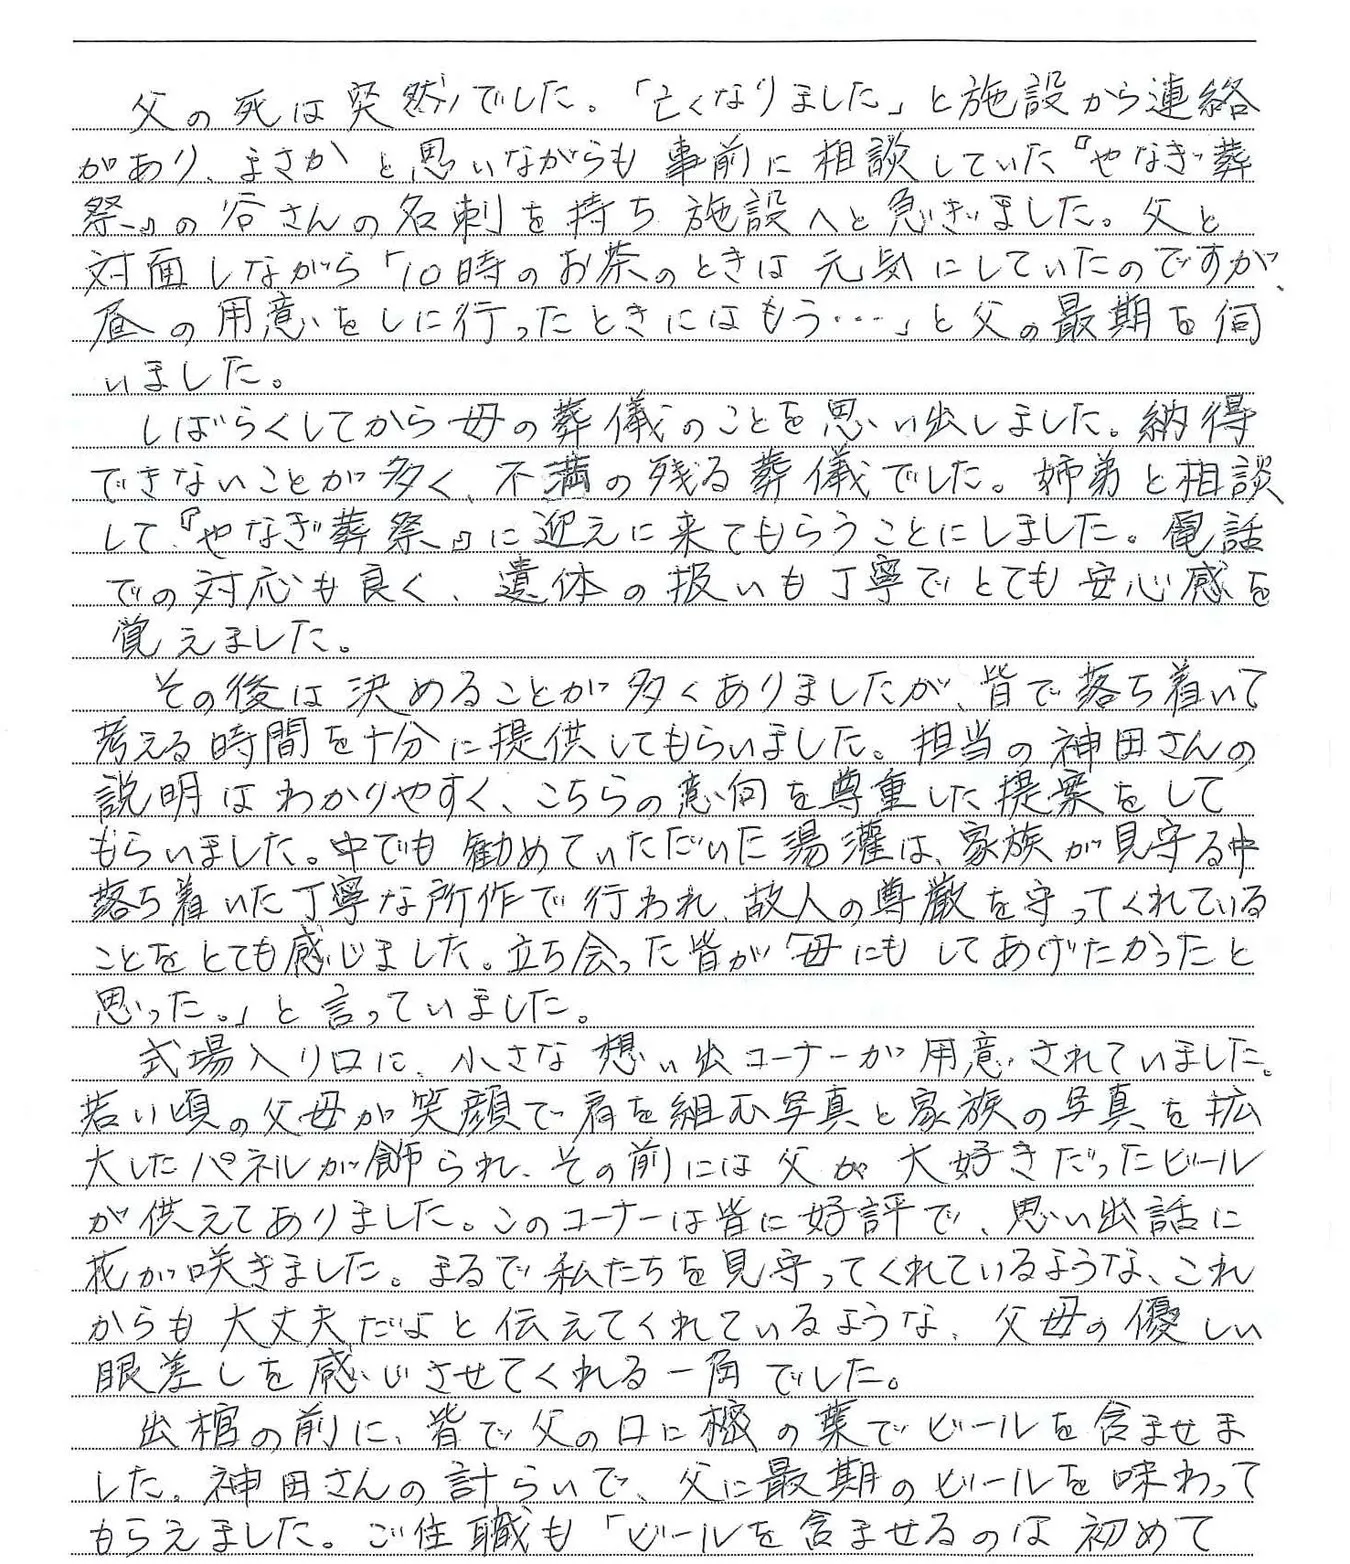 父の死は突然でした。「亡くなりました」と施設から連絡
があり、まさかと思いながらも事前に相談していた『やなぎ葬
祭』の谷さんの名刺を持ち施設へと急ぎました。父と
対面しながら「10時のお茶のときは元気にしていたのですが、
昼の用意をしに行ったときにはもう…」と父の最期を伺
いました。
しばらくしてから母の葬儀のことを思い出しました。納得
できないことが多く、不満の残る葬儀でした。姉弟と相談
して『やなぎ葬祭』に迎えに来てもらうことにしました。電話
での対応も良く、遺体の扱いも丁寧でとても安心感を
覚えました。
その後は決めることが多くありましたが、皆で落ち着いて
考える時間を十分に提供してもらいました。担当の神田さんの
説明はわかりやすく、こちらの意向を尊重した提案をして
もらいました。中でも勧めていただいた湯灌は、家族が見守る中
落ち着いた丁寧な所作で行われ、故人の尊厳を守ってくれている
ことをとても感じました。立ち会った皆が「母にもしてあげたかったと
思った。」と言っていました。
式場入り口に、小さな想い出コーナーが用意されていました。
若い頃の父母が笑顔で肩を組む写真と家族の写真を拡
大したパネルが飾られ、その前には父が大好きだったビール
が供えてありました。このコーナーは皆に好評で、思い出話に
花が咲きました。まるで私たちを見守ってくれているような、これ
からも大丈夫だよと伝えてくれているような、父母の優しい
眼差しを感じさせてくれる一角でした。
出棺の前に、皆で父の口に樒の葉でビールを含ませま
した。神田さんの計らいで、父に最期のビールを味わって
もらえました。ご住職も「ビールを含ませるのは初めて